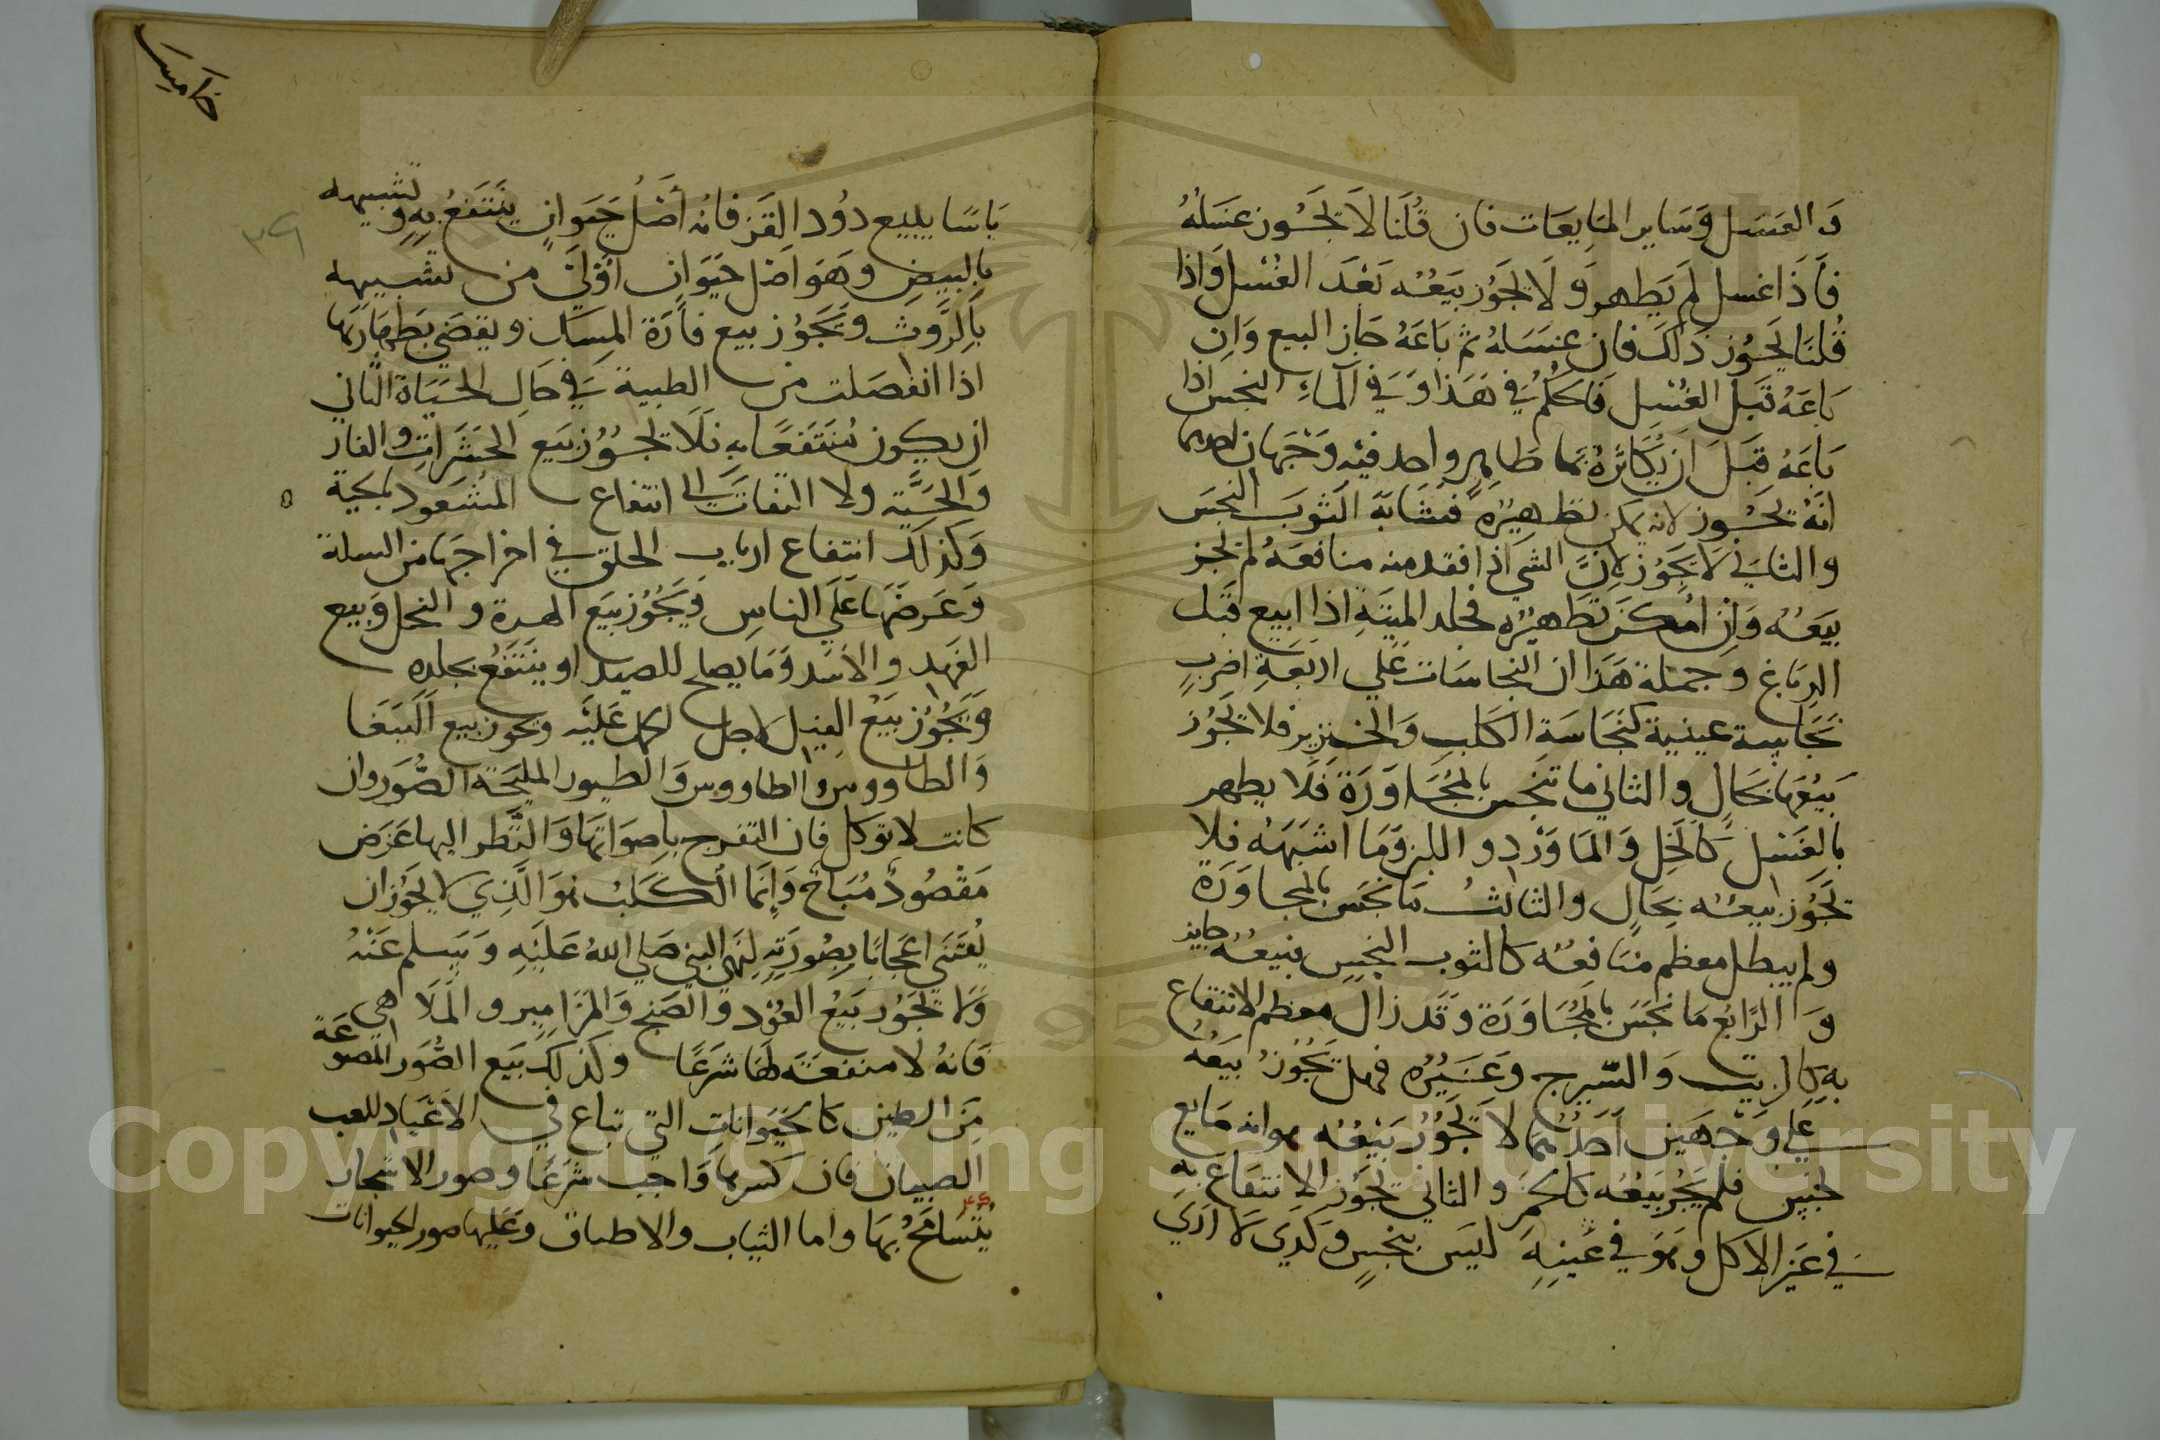 وَالعَسَل وَسَاير المَايعَات فان قُلنَا لاَ يجَسُوز غسَلهُ
فَاذَا غسل لَم يَطهر وَلَا يجَوُز بَيعُه بَعْدَ الغُسْل وَاذا
قُلنَا يَجَوُز ذَلك فان غسَلهُ ثم بَاعَهُ جَاز البيع وَان
بَاعَهُ قبَلَ الغُسْل فَالحكُم في هَذا وَفي المآءِ النجس اذا
بَاعَهُ قبَلَ ان يُكَاثرهُ بما طَاهِرٍ واحد فيه وَجهَان احدهما
انهُ يجَوُز لانه يمكن تطهيرُه فشَابَهَ الثوبَ النجسَ
والثاني لَا يَجَوُز لانَ الشي اذا فقد منه منافعَهُ لم يجز
بَيعُه وَان امكنَ تطهيُره كجلد الميتَةِ اذا ابيع قبَل
الدباغ وجمَلة هَذا ان النجاسَات عَلي اربَعَةِ اضربٍ
نجَاسة عينية كنَجَاسَة الكلبِ وَالخنزير فلا يَجُوز
بَيعُهَا بحَالٍ والثاني ما تنجس بالمجَاوَرَة فَلا يطهر
بالغَسْل كَالخَل وَالمَاوَرْد واللبن وَمَا اشبَهَهُ فلا
يَجَوُز بيعُه بحَالٍ والثالثُ مَا نجَس بالمجاوَرَة
ولم يبطل معظم منَافعُه كالثوب النجِس فبيعُهُ جايز
وَالرَّابع مَا نجَسَ بالمُجَاوَرَة وَقَد زال معظم الانتفاع
بهِ كالزيت وَالسّيرج وَغيَرُه فهل يَجُوز بَيعُهُ
عَلي وَجْهَين احَدُهُمَا لا يَجَوُز بَيْعُه هو انه مَايع
نجِس فلم يَجُز بَيعُه كالخمَر والثاني يَجَوُز الاِنتفاَع بهِ
في غَير الاكل وَهوَ في عَينِهِ ليَس بنجسٍ وكَذي لا ارَي
بَاسًا ببيع دُود القَز فانه أصْل حَيَوانٍ ينَتَفعُ بهِ وتشبيهه
بالبيضِ وهَوَ اصْل حيَوان أوْلَي من تشبيهه
بالرَّوث ويَجَوُز بيع فأرَة المسك ويقضي بطهارتها
اذا انفصَلت من الظبية في حَالِ الحيَاة الثاني
ان يكون مُنتَفعًا بهِ فَلَا يَجُوُز بَيع الحَشَراتِ والفار
وَالحَيَّه ولا التفاتَ الي انتفاع المشعود بالحيَة
وَكذلك انتفاع ارباب الحلق في اخراجها من السلة
وَعَرضها عَلَي الناسِ وَيَجَوُز بيَع الهرة والنحل وَبيع
الفَهد والاسَد وَمَا يصلح للصيد او ينتَفعُ بجلده
وَيَجُوُز بَيْع الفيل لاجل الحمل عَليَه ويجوز بيع الببغا
وَالطاووس والطاووس وَالطيور المليحَة الصُّوَر وان
كانت لا توكل فان التفرج باصوَاتهَا وَالنَّظر اليها غرَض
مَقْصُودٌ مُبَاحٌ وَانمَا الكَلبُ هوَ الَّذي لا يجَوُز ان
يُقتَني اعجَابًا بصُورَتهِ لنَهي النبي صَلي اللهُ عَليَه وَسَلم عَنْهُ
وَلا يَجَوُز بَيعُ العُوْد والصَنج وَالمزَامِير والملَاهي
فَانهُ لا منفعَة لهَا شَرعًا وكذلك بيَع الصُّوَر المصوغَة
مَن الطين كالحيَوَاناتِ التي تباع في الاعْيَاد للعب
الصبيان فان كسرها وَاجب شَرعًا وصور الاشجار
يُتسَامحُ بهَا واما الثياب والاطباق وَعَليها صور الحيوانات
خامس
٣٩